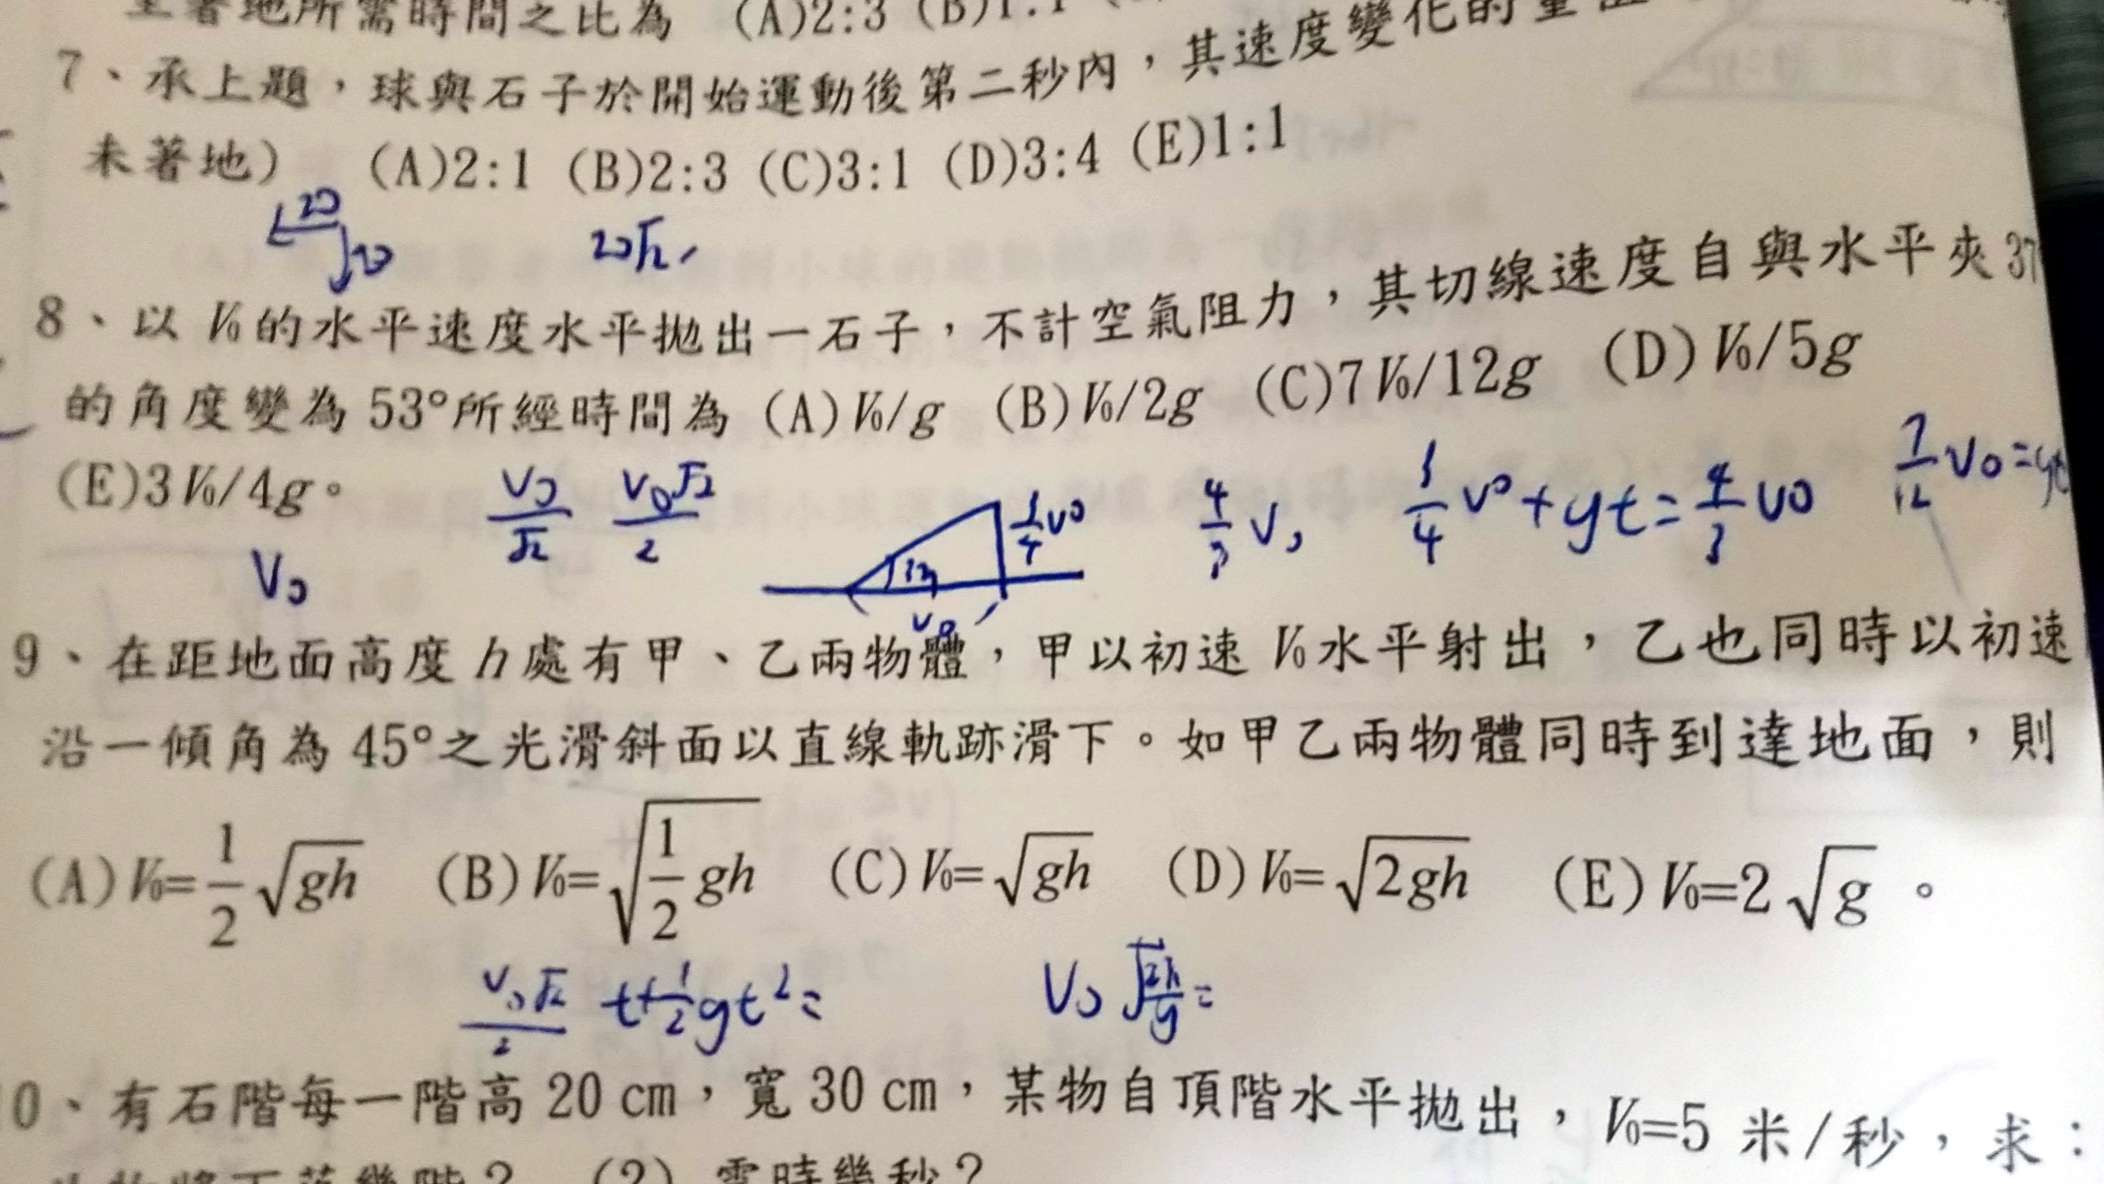 著地所需時間之比為 (A)2:3 (B)1:1
7、承上題，球與石子於開始運動後第二秒內，其速度變化的量
未著地) (A)2:1 (B)2:3 (C)3:1 (D)3:4 (E)1:1
20 20 20√2
8、以 V₀ 的水平速度水平拋出一石子，不計空氣阻力，其切線速度自與水平夾 37
的角度變為 53°所經時間為 (A) V₀/g (B) V₀/2g (C)7 V₀/12g (D) V₀/5g
(E)3 V₀/4g。
V₀/√2 V₀√2/2 V₀ 4/3 V₀ +gt= 4/3 V₀ 7/12 V₀=gt
V₀
9、在距地面高度 h 處有甲、乙兩物體，甲以初速 V₀ 水平射出，乙也同時以初速
沿一傾角為 45°之光滑斜面以直線軌跡滑下。如甲乙兩物體同時到達地面，則
(A) V₀=1/2 √gh (B) V₀=√(1/2 gh) (C) V₀=√gh (D) V₀=√2gh (E) V₀=2√g 。
V₀√2/2 t+1/2gt²= V₀√(2h/g)=
0、有石階每一階高 20 cm，寬 30 cm，某物自頂階水平拋出，V₀=5 米/秒，求：
下落幾階？ (2) 需時幾秒？